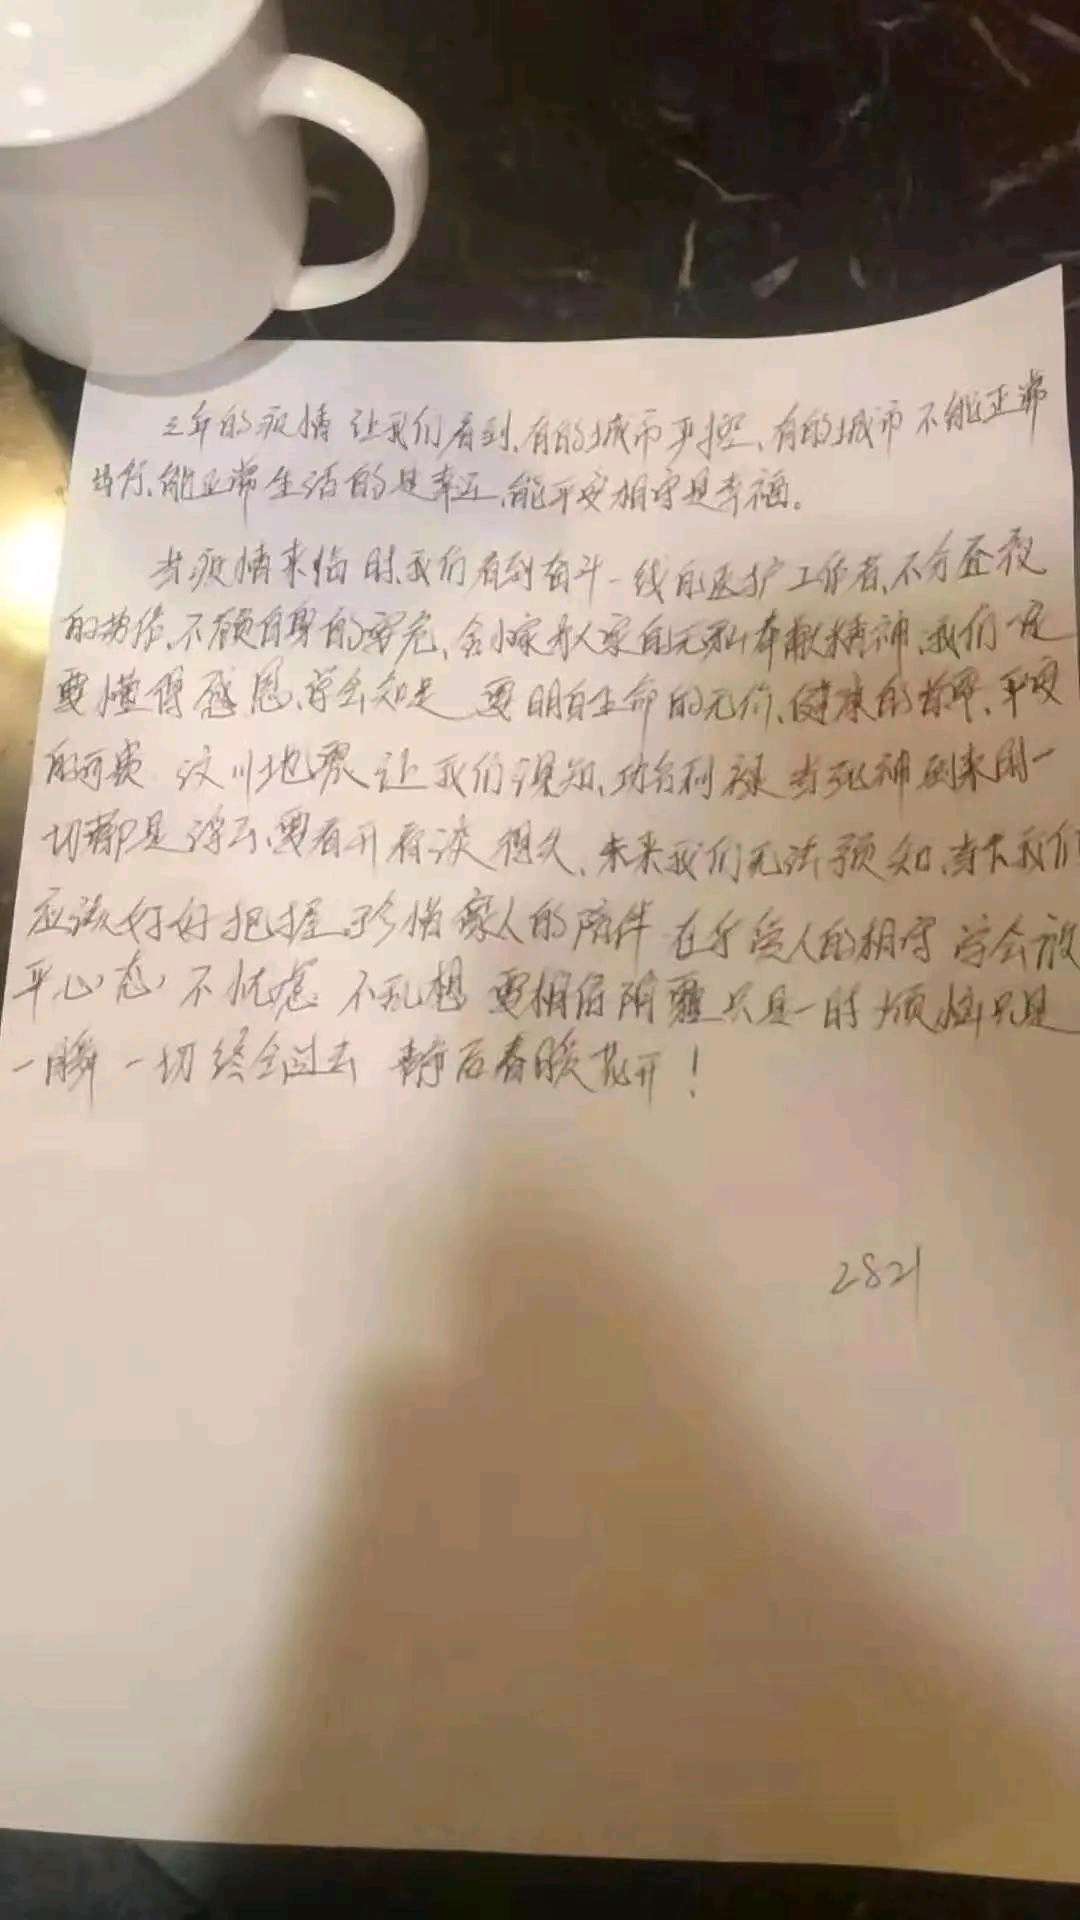 三年的疫情 让我们看到、有的城市严控、有的城市不能正常
出行、能正常生活的是幸运、能平安相守是幸福。
当疫情来临时、我们看到奋斗一线的医护工作者、不分昼夜
的劳作、不顾自身的安危、舍小家为人家的无私奉献精神、我们一定
要懂得感恩、学会知足 要明白生命的无价、健康的首要、平安
的可贵 汶川地震让我们得知、功名利禄 当死神到来时一
切都是浮云、要看开看淡得失、未来我们无法预知、当下我们
应该好好把握、珍惜家人的陪伴 在乎爱人的相守 学会放
平心态 不忧虑 不乱想 要相信阴霾只是一时 烦恼只是
一瞬 一切终会过去 静后春暖花开！
2821